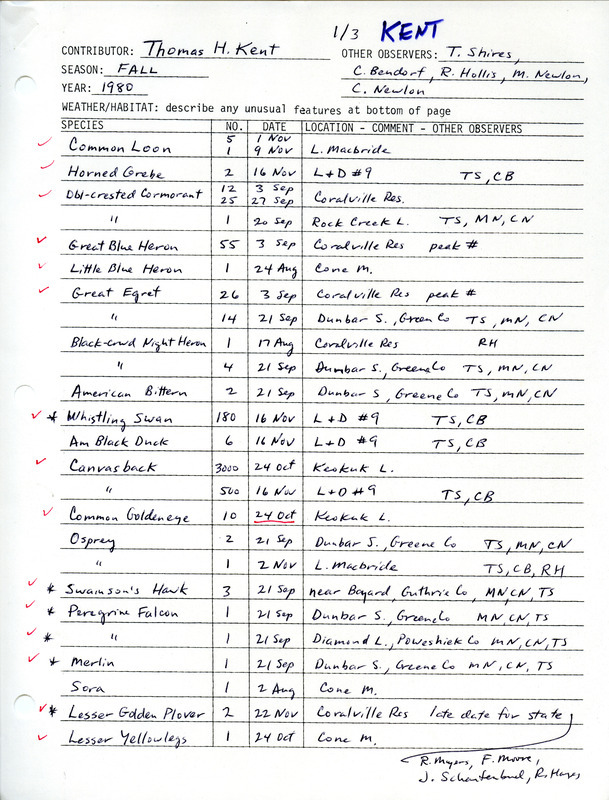 1/3 KENT
CONTRIBUTOR: Thomas H. Kent OTHER OBSERVERS: T. Shires,
SEASON: FALL C. Bendorf, R. Hollis, M. Newlon,
YEAR: 1980 C. Newlon
WEATHER/HABITAT: describe any unusual features at bottom of page
SPECIES NO. DATE LOCATION - COMMENT - OTHER OBSERVERS
5 1 Nov
Common Loon 1 9 Nov L. Macbride
Horned Grebe 2 16 Nov L+D #9 TS, CB
Dbl-crested Cormorant 12 3 Sep
25 27 Sep Coralville Res.
" 1 20 Sep Rock Creek L. TS, MN, CN
Great Blue Heron 55 3 Sep Coralville Res peak #
Little Blue Heron 1 24 Aug Cone M.
Great Egret 26 3 Sep Coralville Res peak #
" 14 21 Sep Dunbar S., Greene Co TS, MN, CN
Black-crwd Night Heron 1 17 Aug Coralville Res RH
" 4 21 Sep Dumbar S., Greene Co TS, MN, CN
American Bittern 2 21 Sep Dunbar S, Greene Co TS, MN, CN
* Whistling Swan 180 16 Nov L+D #9 TS, CB
Am Black Duck 6 16 Nov L+D #9 TS, CB
Canvasback 3000 24 Oct Keokuk L.
" 500 16 Nov L+D #9 TS, CB
Common Goldeneye 10 24 Oct Keokuk L.
Osprey 2 21 Sep Dunbar S., Greene Co TS, MN, CN
" 1 2 Nov L. Macbride TS, CB, RH
* Swainson's Hawk 3 21 Sep near Bayard, Guthrie Co MN, CN, TS
* Peregrine Falcon 1 21 Sep Dunbar S., Greene Co MN, CN, TS
* " 1 21 Sep Diamond L., Poweshiek Co MN, CN, TS
* Merlin 1 21 Sep Dunbar S., Greene Co MN, CN, TS
Sora 1 2 Aug Cone M.
* Lesser Golden Plover 2 22 Nov Coralville Res late date for state
Lesser Yellowlegs 1 24 Oct Cone M.
R. Myers, F. Moore,
J. R. Hayes